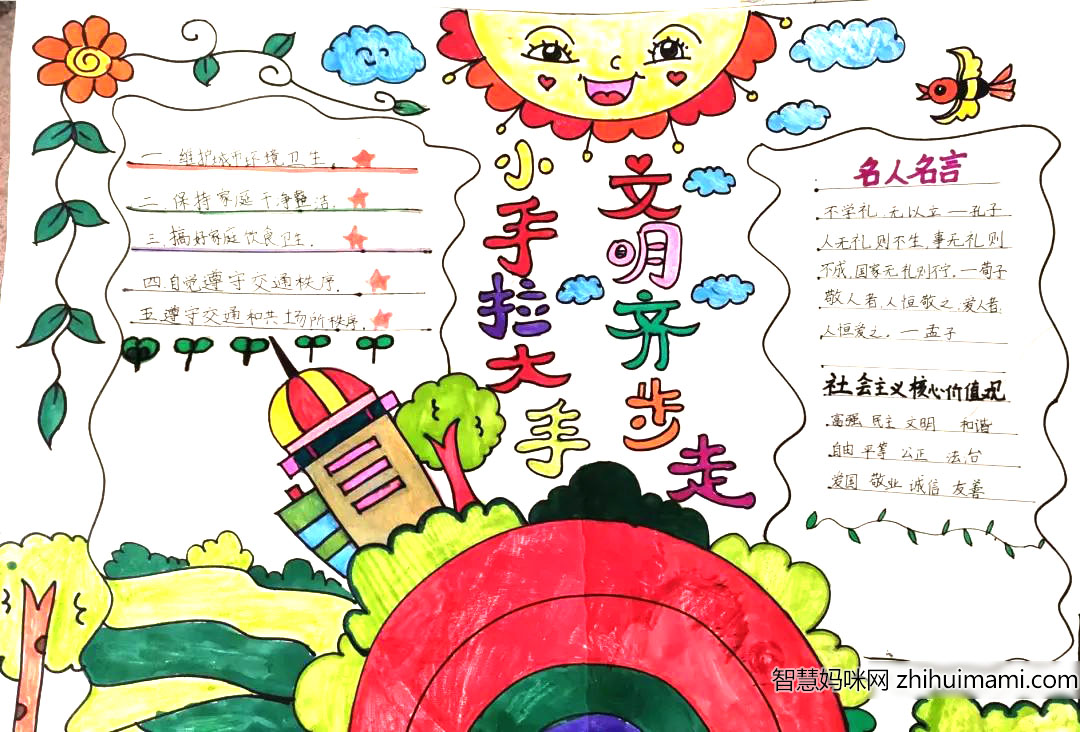 小手拉大手
文明齐步走
一.维护城市环境卫生.
二.保持家庭干净整洁.
三.搞好家庭饮食卫生.
四.自觉遵守交通秩序.
五.遵守交通和共场所秩序.
名人名言
不学礼,无以立 —孔子
人无礼则不生,事无礼则
不成,国家无礼则不宁.—荀子
敬人者,人恒敬之,爱人者,
人恒爱之. —孟子
社会主义核心价值观
富强 民主 文明 和谐
自由 平等 公正 法台
爱国 敬业 诚信 友善
智慧妈咪网 zhihuimami.com